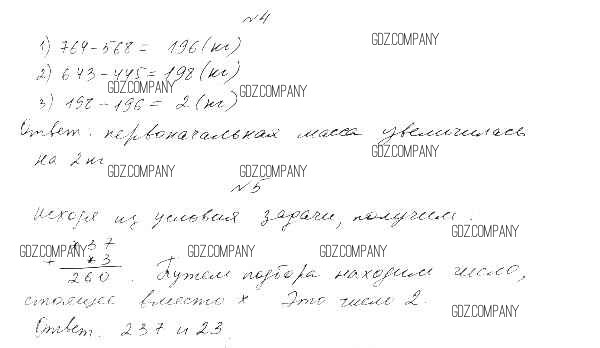 №4
1) 764-568 = 196 (кг)
GDZ.COMPANY
2) 643-445 = 198 (кг)
GDZ.COMPANY GDZ.COMPANY
3) 198-196 = 2 (кг)
Ответ. первоначальная масса увеличилась
GDZ.COMPANY
на 2 кг
GDZ.COMPANY GDZ.COMPANY
№5
Исходя из условия задачи, получим:
GDZ.COMPANY
* 3 7
GDZ.COMPANY GDZ.COMPANY GDZ.COMPANY
+ * 3
2 6 0 . Путем подбора находим число,
стоящее вместо x Это число 2.
GDZ.COMPANY
Ответ. 237 и 23
GDZ.COMPANY